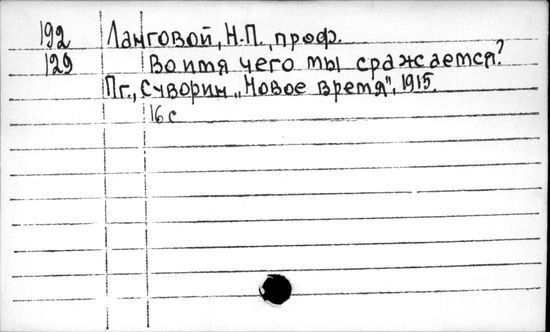 192 Ланговой, Н.П., проф.
129 Во имя чего мы сражаемся?
Пг., Суворин "Новое время", 1915.
16 с